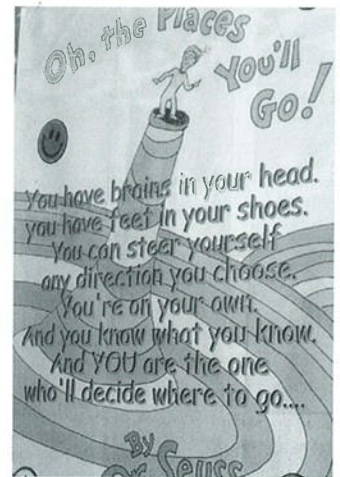 Oh, the Places
You'll
Go!
You have brains in your head.
you have feet in your shoes.
You can steer yourself
any direction you choose.
You're on your own.
And you know what you know.
And YOU are the one
who'll decide where to go....
By
Dr. Seuss